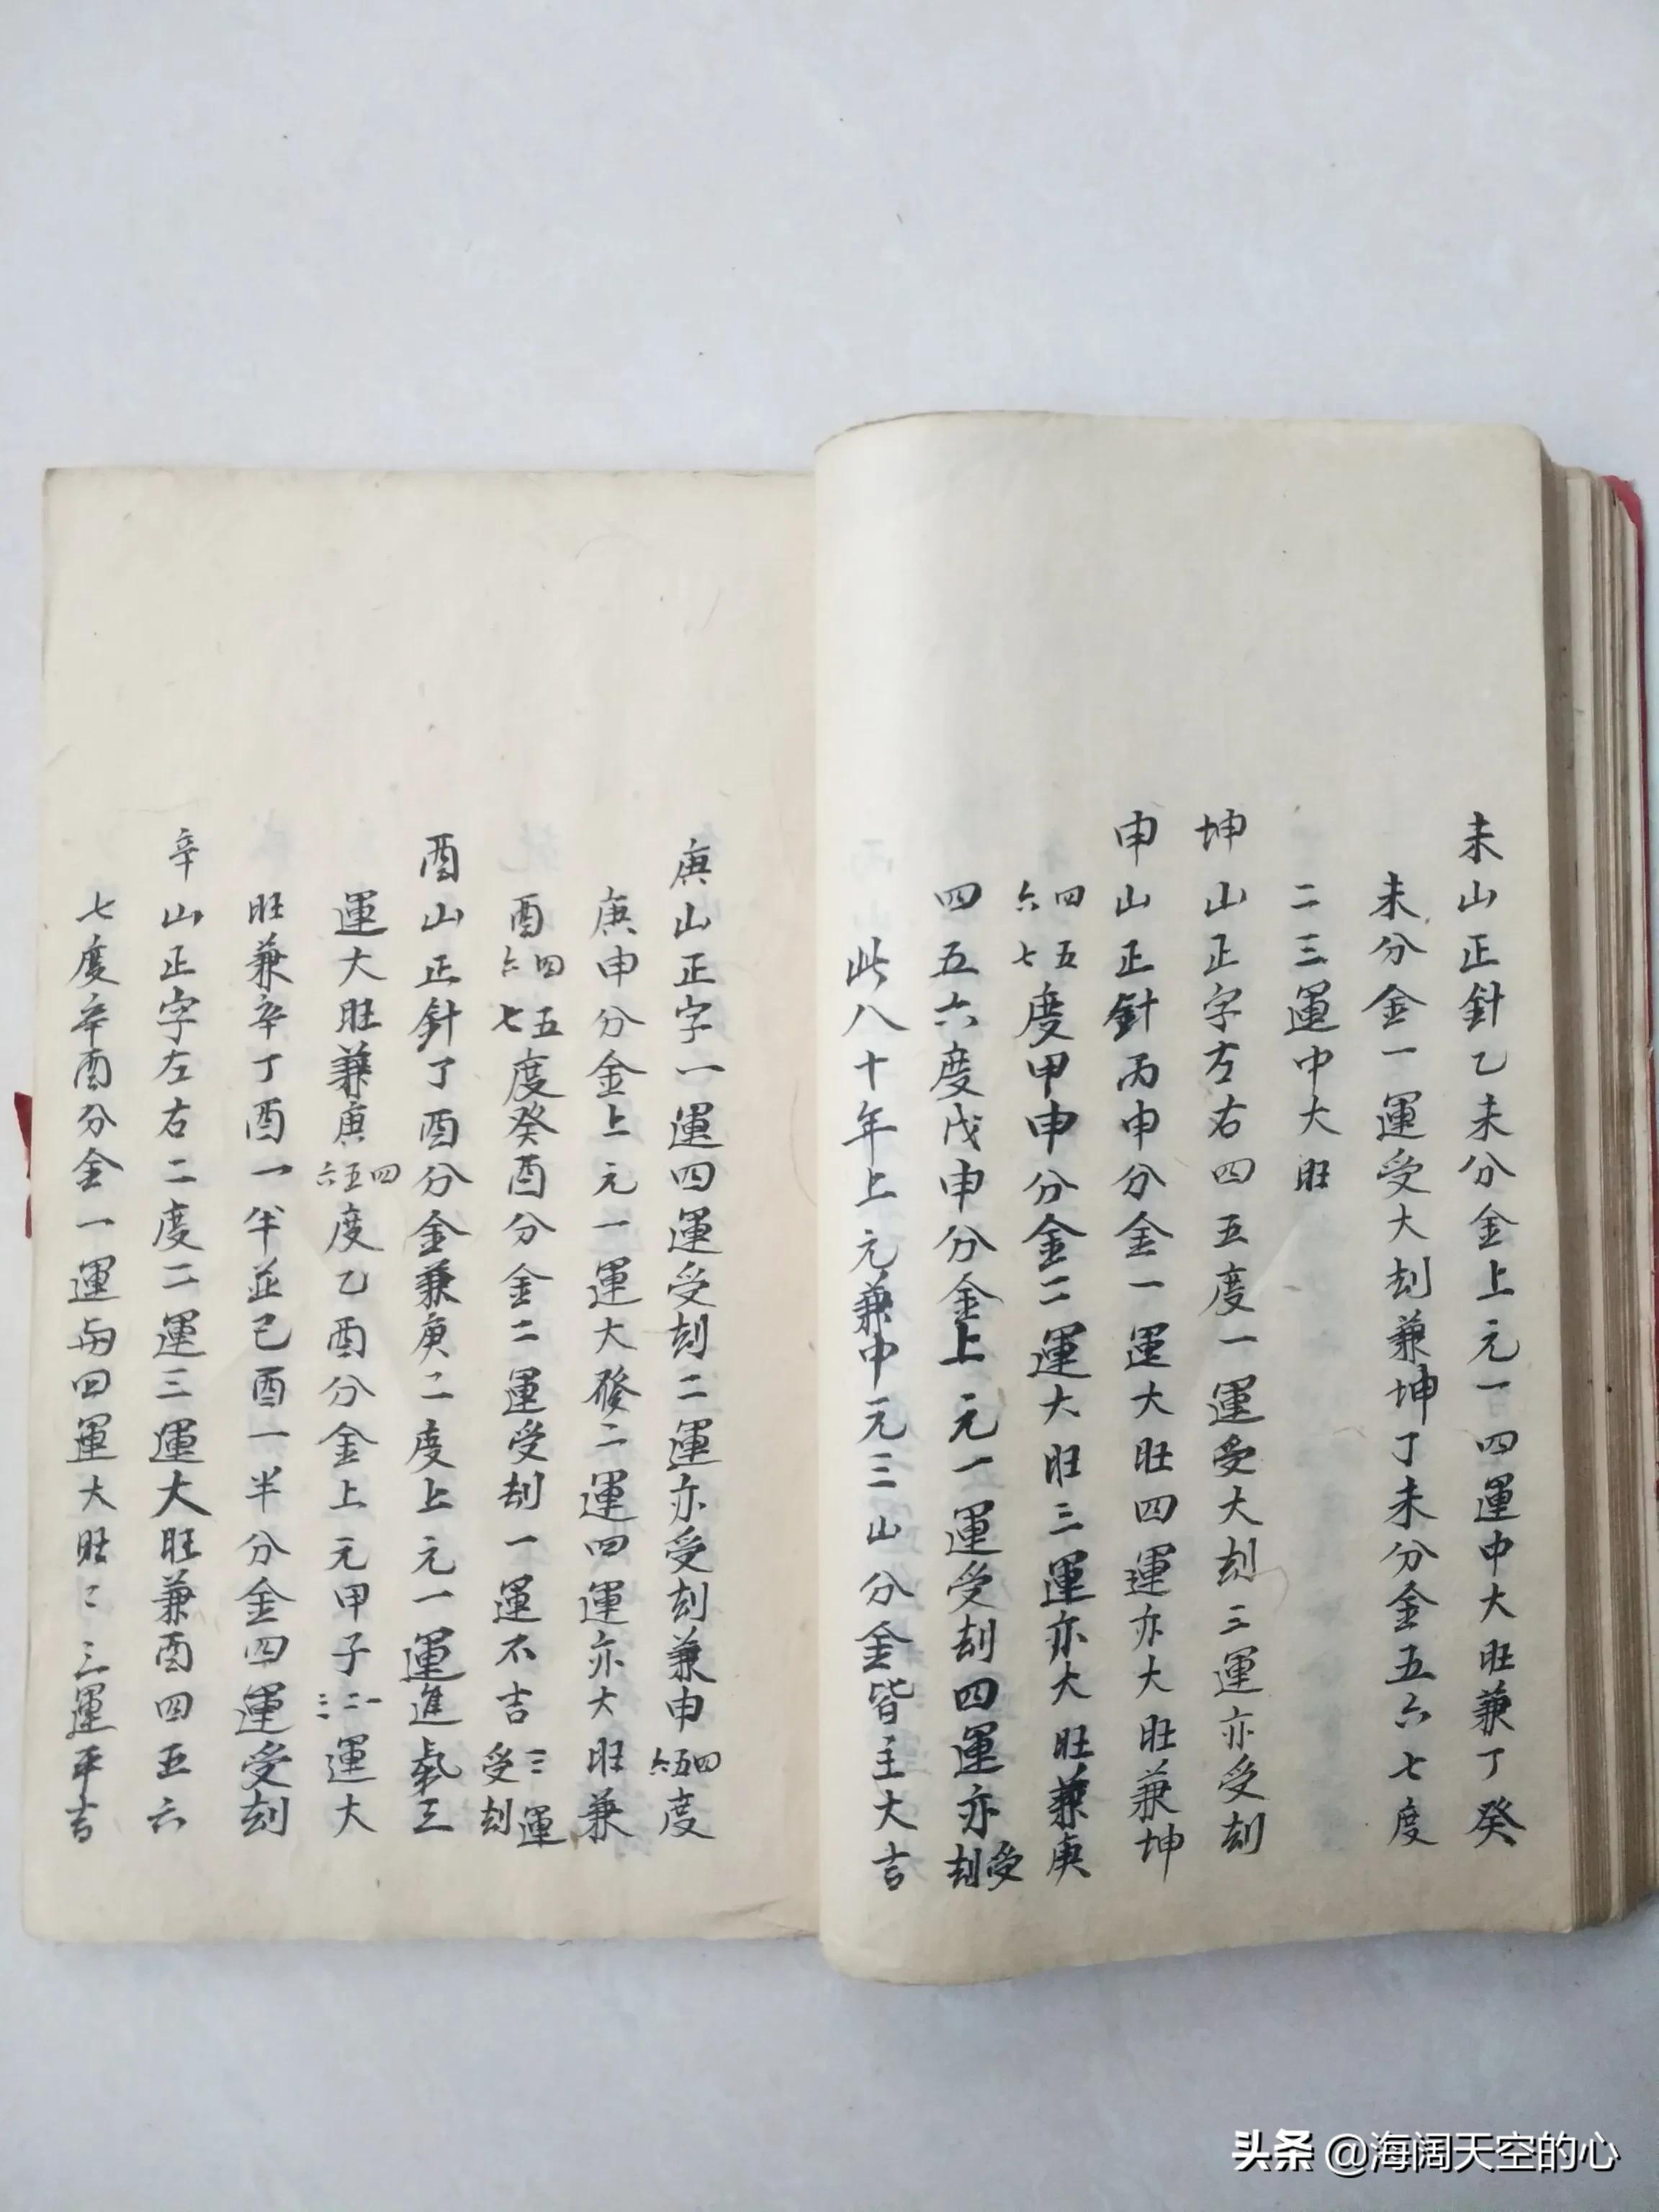 未山正針乙未分金上元一四運中大旺兼丁癸
未分金一運受大刦兼坤丁未分金五六七度
二三運中大旺
坤山正字左右四五度一運受大刦三運亦受刦
申山正針丙申分金一運大旺四運亦大旺兼坤
四五六七度甲申分金二運大旺三運亦大旺兼庚
四五六度戊申分金上元一運受刦四運亦受刦
此八十年上元兼中元三山分金皆主大吉
庚山正字一運四運受刦二運亦受刦兼申四五六度
庚申分金上元一運大發二運四運亦大旺兼
酉四五六七度癸酉分金二運受刦一運不吉三運受刦
酉山正針丁酉分金兼庚二度上元一運進氣三
運大旺兼庚四五六度乙酉分金上元甲子一二三運大
旺兼辛丁酉一半並己酉一半分金四運受刦
辛山正字左右二度二運三運大旺兼酉四五六
七度辛酉分金一運與四運大旺二三運平吉
头条 @海阔天空的心